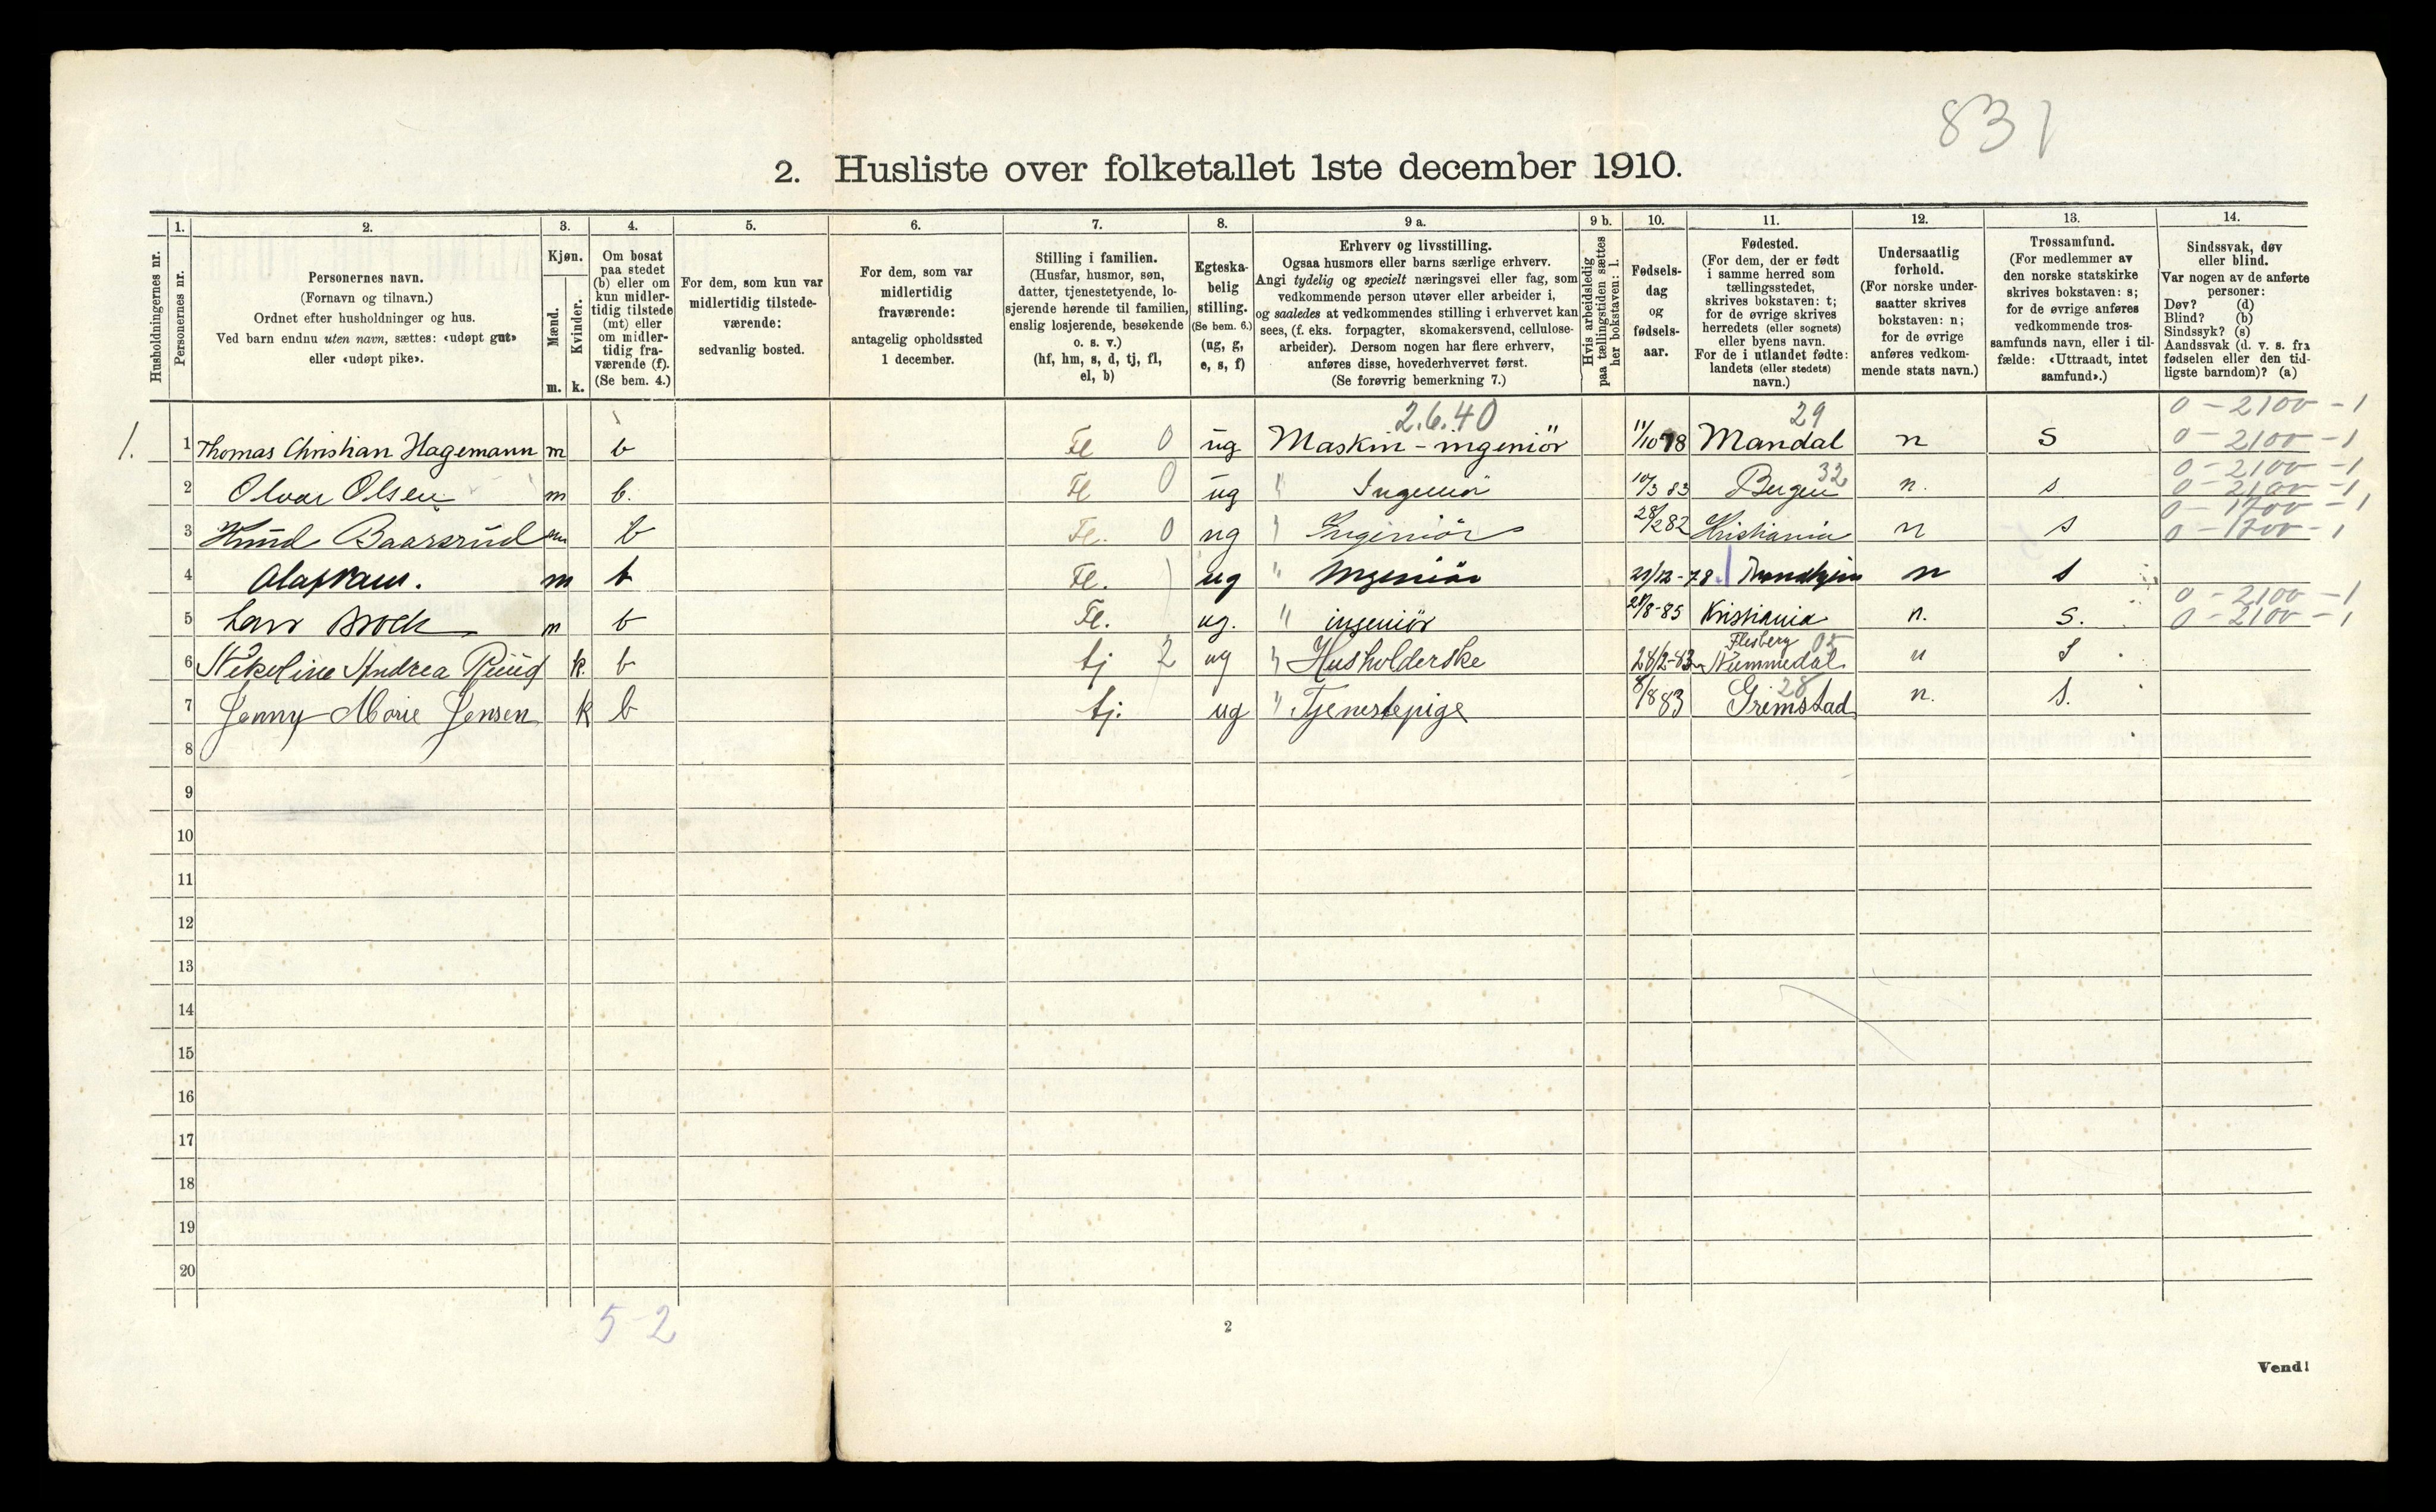 831
2. Husliste over folketallet 1ste december 1910.
Husholdningernes nr.
1.
Personernes nr.
2.
Personernes navn.
(Fornavn og tilnavn.)
Ordnet efter husholdninger og hus.
Ved barn endnu uten navn, sættes: «udøpt gut»
eller «udøpt pike».
3.
Kjøn.
Mænd.
m.
Kvinder.
k.
4.
Om bosat
paa stedet
(b) eller om
kun midler-
tidig tilstede
(mt) eller
om midler-
tidig fra-
værende (f).
(Se bem. 4.)
5.
For dem, som kun var
midlertidig tilstede-
værende:
sedvanlig bosted.
6.
For dem, som var
midlertidig
fraværende:
antagelig opholdssted
1 december.
7.
Stilling i familien.
(Husfar, husmor, søn,
datter, tjenestetyende, lo-
sjerende hørende til familien,
enslig losjerende, besøkende
o. s. v.)
(hf, hm, s, d, tj, fl,
el, b)
8.
Egteska-
belig
stilling.
(Se bem. 6.)
(ug, g,
e, s, f)
9 a.
Erhverv og livsstilling.
Ogsaa husmors eller barns særlige erhverv.
Angi tydelig og specielt næringsvei eller fag, som
vedkommende person utøver eller arbeider i,
og saaledes at vedkommendes stilling i erhvervet kan
sees, (f. eks. forpagter, skomakersvend, cellulose-
arbeider). Dersom nogen har flere erhverv,
anføres disse, hovederhvervet først.
(Se forøvrig bemerkning 7.)
9 b.
Hvis arbeidsledig
paa tællingstiden sættes
her bokstaven: l.
10.
Fødsels-
dag
og
fødsels-
aar.
11.
Fødested.
(For dem, der er født
i samme herred som
tællingsstedet,
skrives bokstaven: t;
for de øvrige skrives
herredets (eller sognets)
eller byens navn.
For de i utlandet fødte:
landets (eller stedets)
navn.)
12.
Undersaatlig
forhold.
(For norske under-
saatter skrives
bokstaven: n;
for de øvrige
anføres vedkom-
mende stats navn.)
13.
Trossamfund.
(For medlemmer av
den norske statskirke
skrives bokstaven: s;
for de øvrige anføres
vedkommende tros-
samfunds navn, eller i til-
fælde: «Uttraadt, intet
samfund».)
14.
Sindssvak, døv
eller blind.
Var nogen av de anførte
personer:
Døv? (d)
Blind? (b)
Sindssyk? (s)
Aandssvak (d. v. s. fra
fødselen eller den tid-
ligste barndom)? (a)
2.6.40 29 0 - 2100 - 1
1. 1 Thomas Christian Hagemann m b Fl 0 ug Maskin-ingeniör 11/10 78 Mandal n S 0 - 2100 - 1
32 0 - 2100 - 1
2 Olvar Olsen m b. Fl 0 ug " Ingeniör 10/3 83 Bergen n. s 0 - 2100 - 1
0 - 1700 - 1
3 Knud Baarsrud m b Fl. 0 ug " Ingeniör 28/2 82 Kristiania n s 0 - 1700 - 1
4 Olaf m b Fl. ug " Ingeniör 21/12-78 Trondhjem n s
0 - 2100 - 1
5 Lars Brock m b Fl. ug. " ingeniör 28/8-85 Kristiania n. s. 0 - 2100 - 1
Flesberg 05
6 Nikoline Andrea Ruud k. b tj 2 ug " Husholderske 28/2-83 Nummedal n s
28
7 Jenny Marie Jensen k b tj. ug " Tjenestepige 8/8 83 Grimstad n. s.
8
9
10
11
12
13
14
15
16
17
18
19
20
5 2
2
Vend!